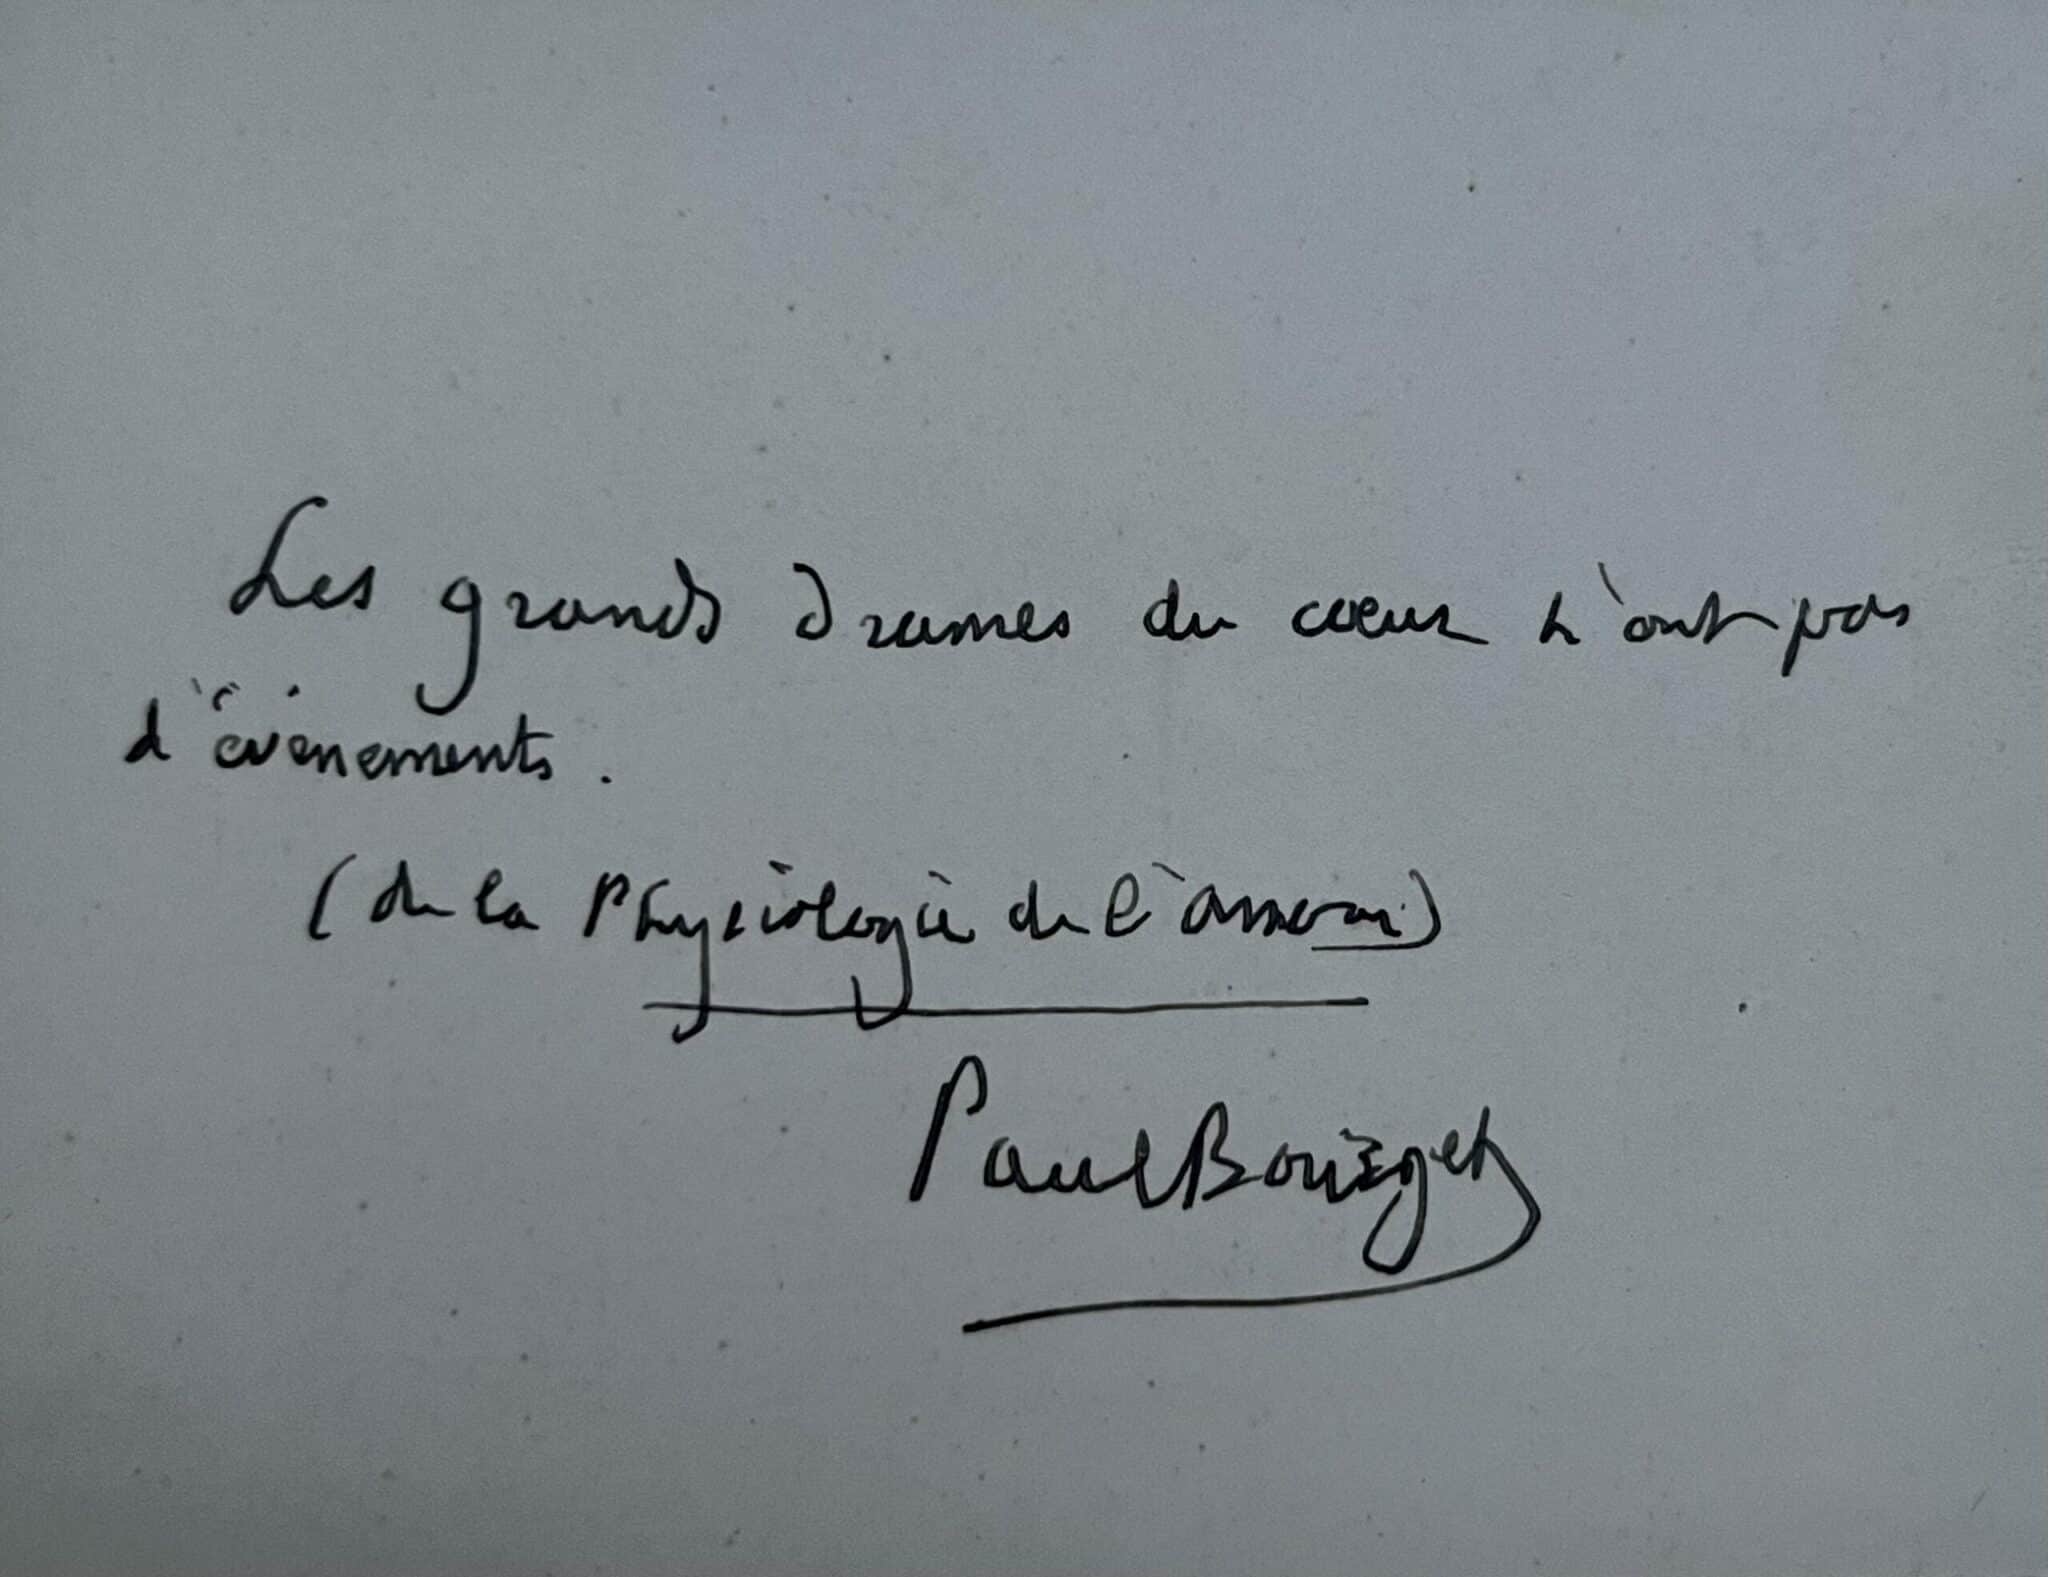 Les grands drames du cœur n'ont pas
d'évènements.
(de la Physiologie de l'amour)
Paul Bourget